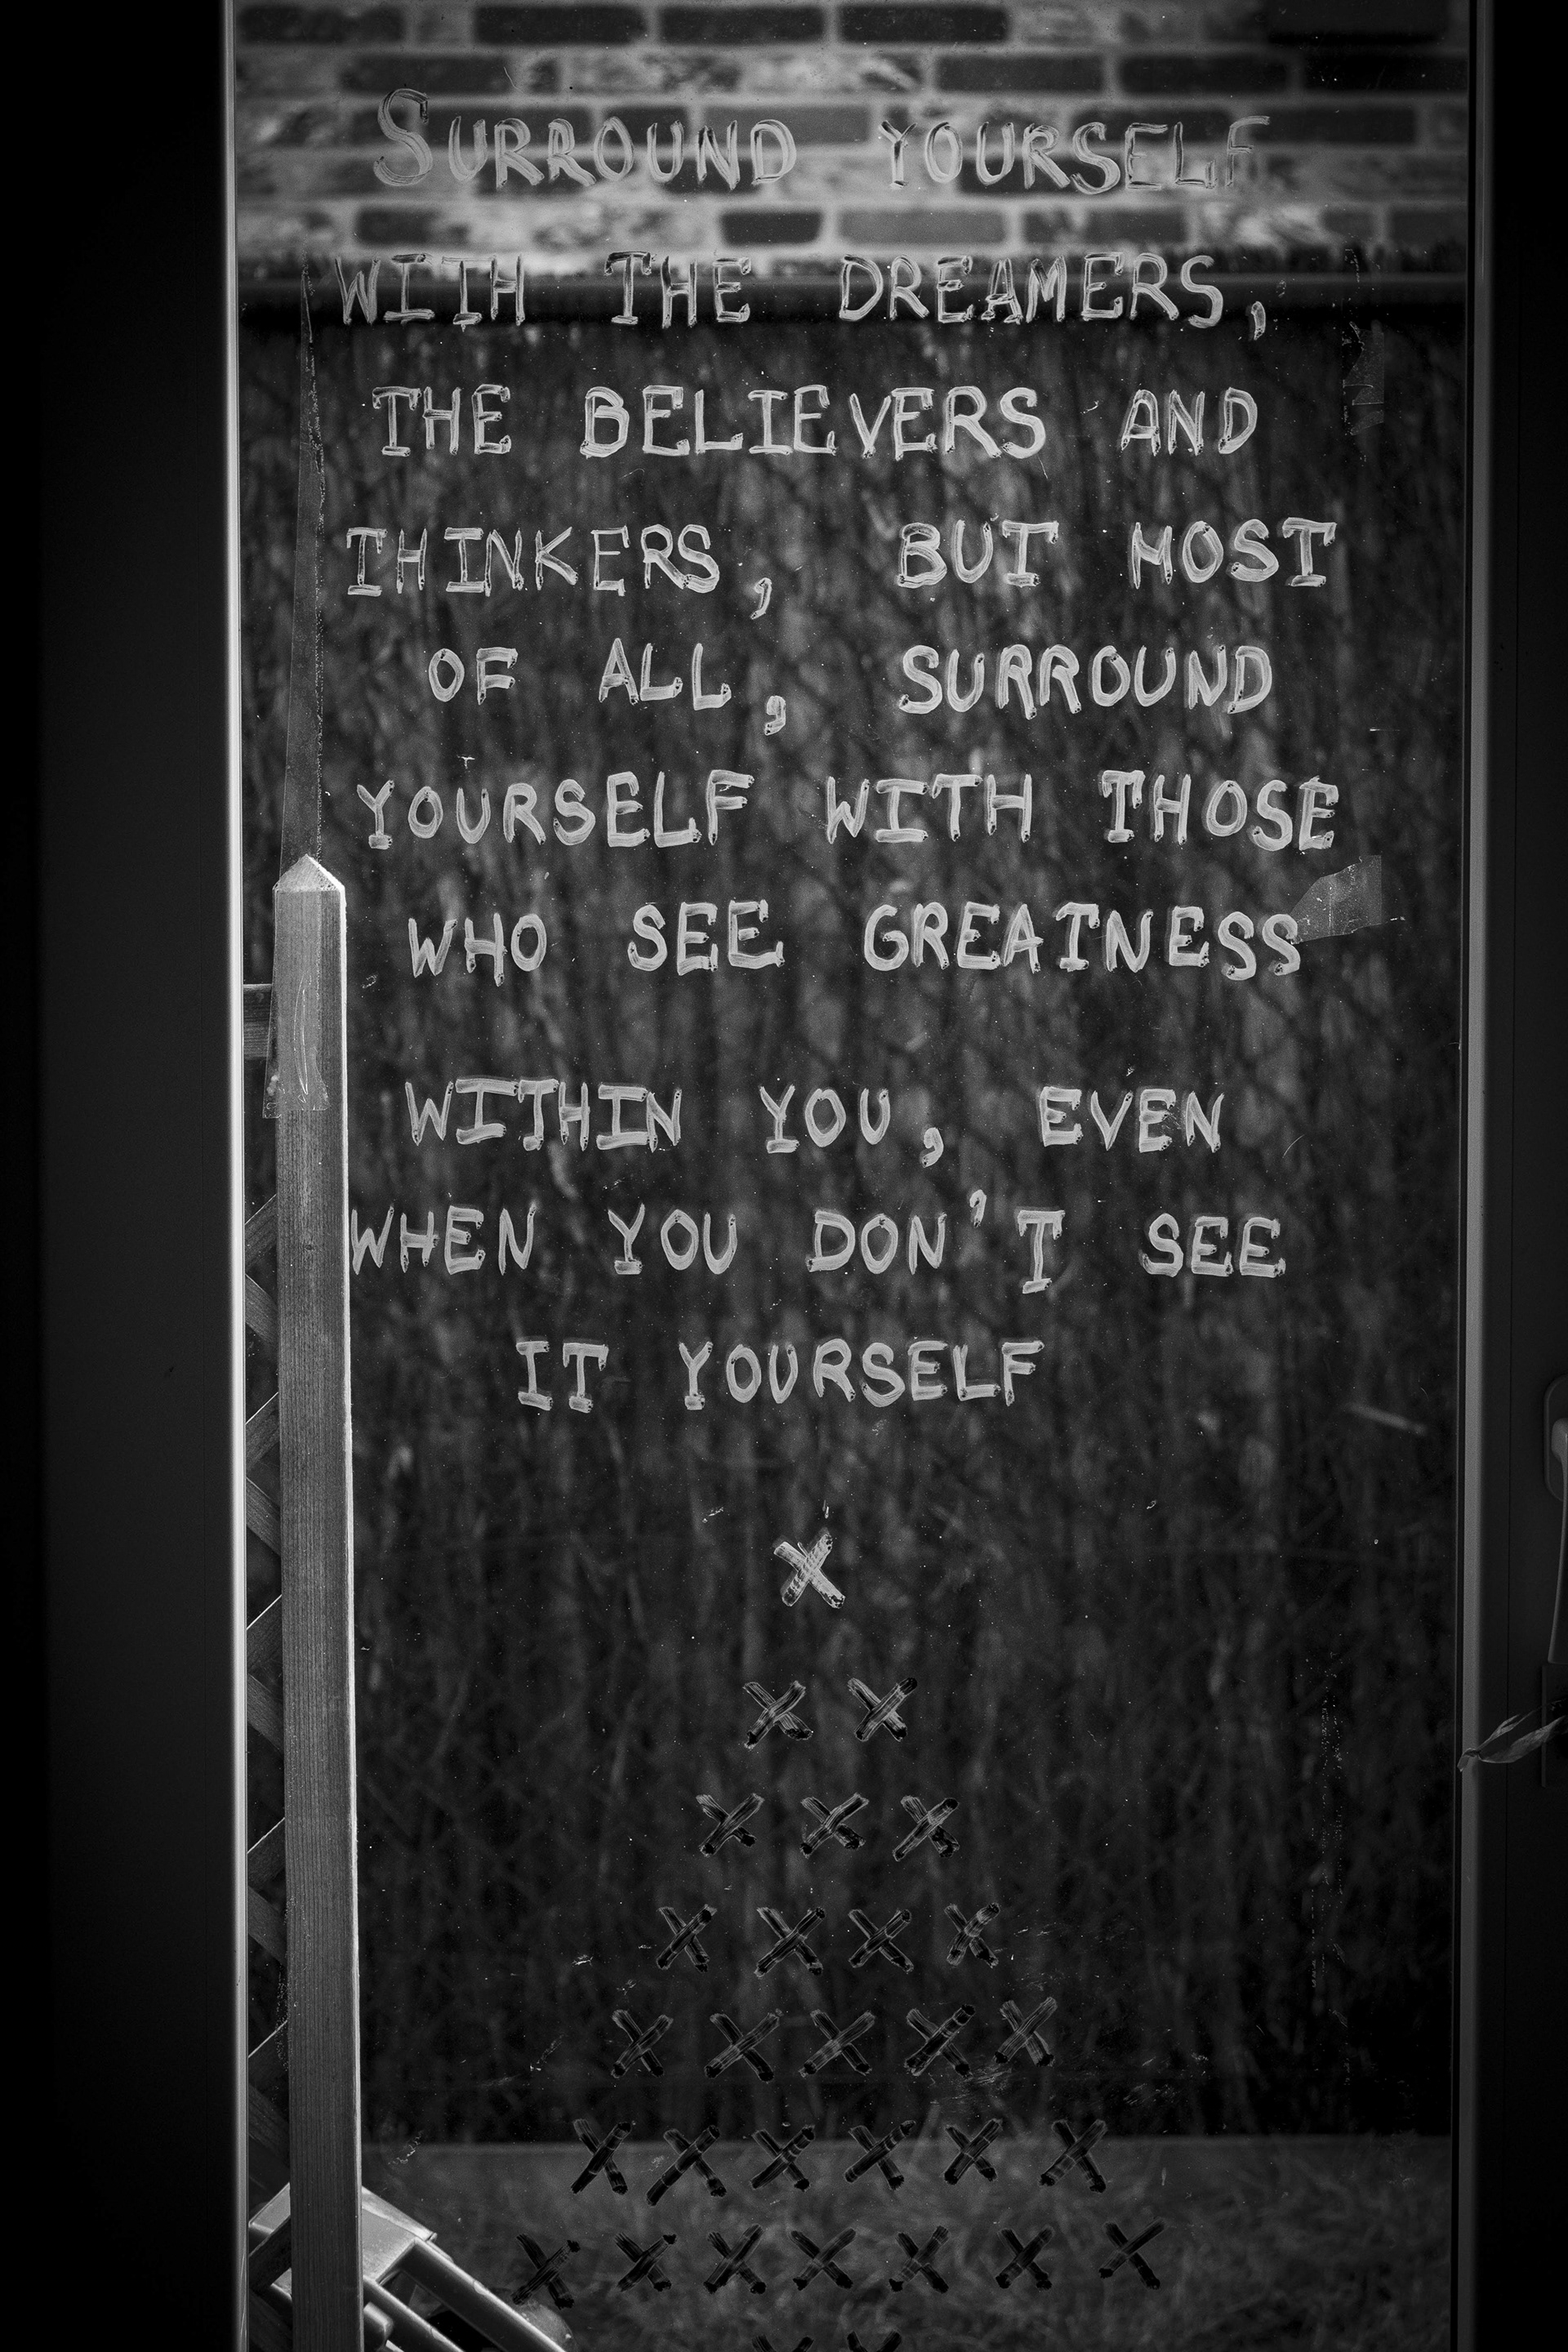 SURROUND YOURSELF
WITH THE DREAMERS,
THE BELIEVERS AND
THINKERS, BUT MOST
OF ALL, SURROUND
YOURSELF WITH THOSE
WHO SEE GREATNESS
WITHIN YOU, EVEN
WHEN YOU DON'T SEE
IT YOURSELF
X
X X
X X X
X X X X
X X X X X
X X X X X X
X X X X X X X
X X